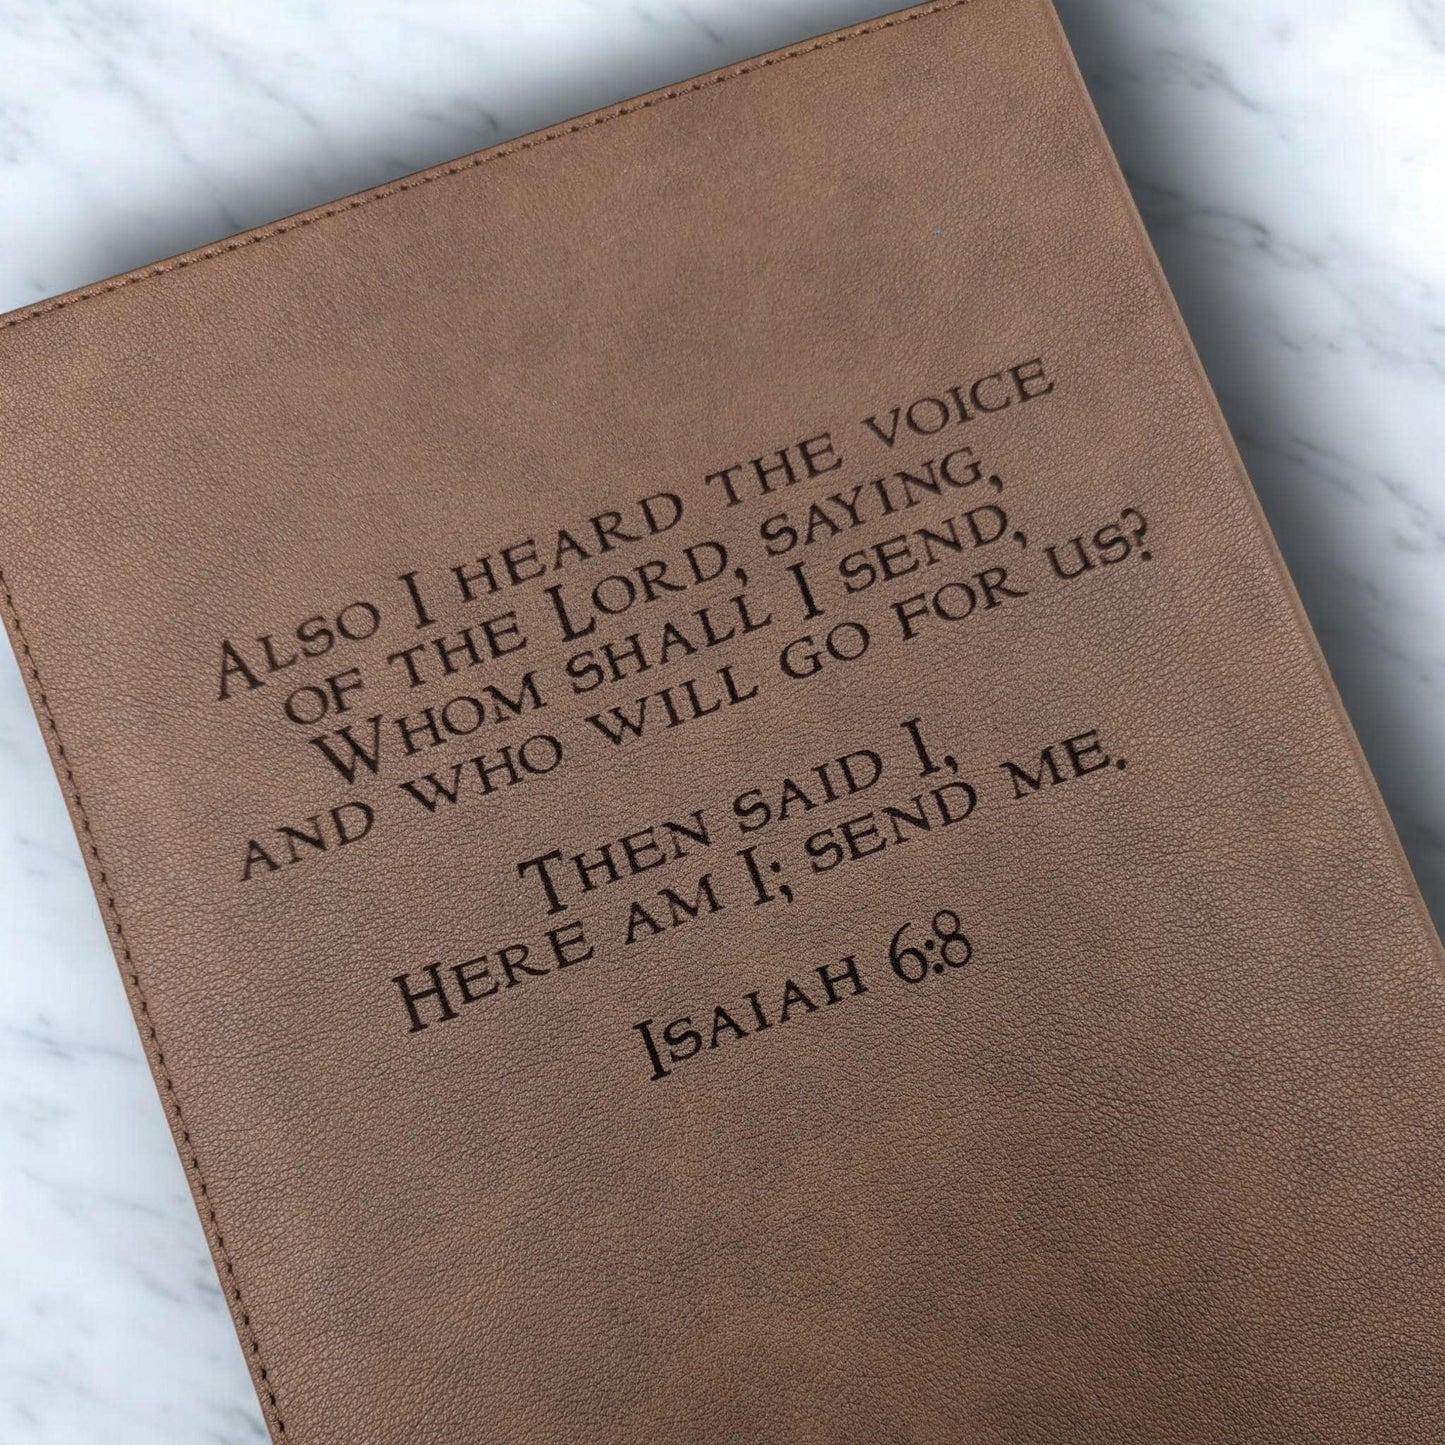 Also I heard the voice
of the Lord, saying,
Whom shall I send,
and who will go for us?
Then said I,
Here am I; send me.
Isaiah 6:8